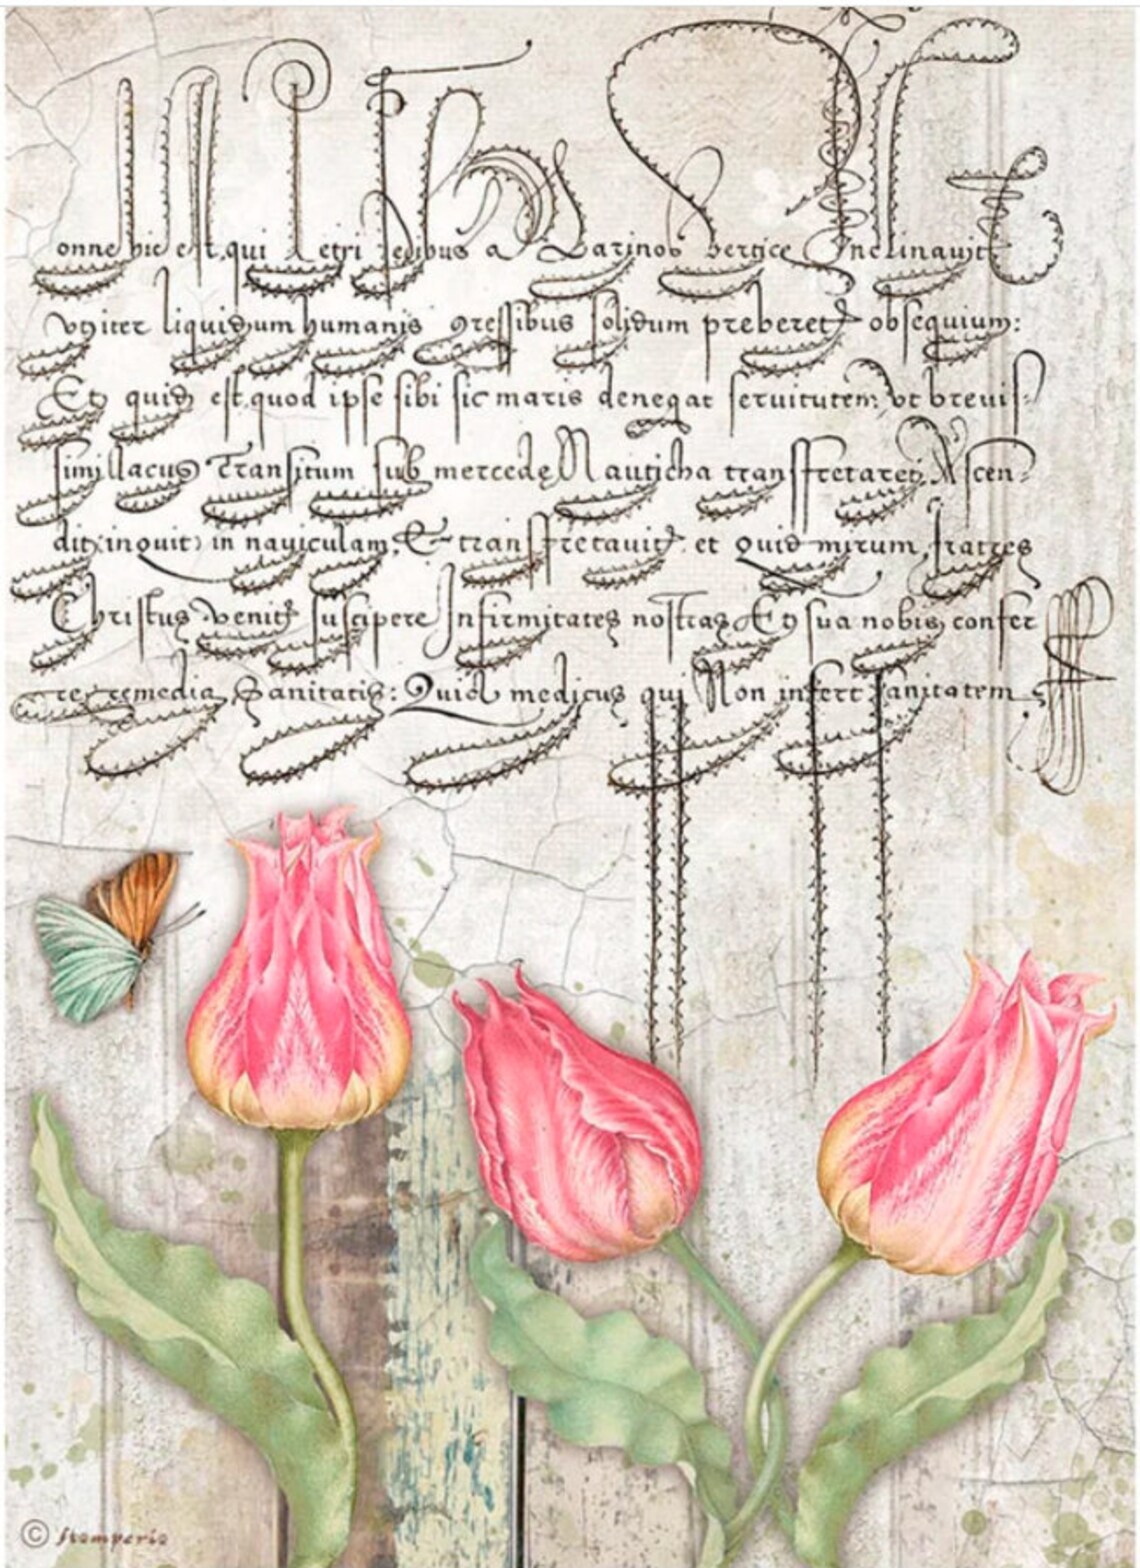 onne hic est, qui Petri pedibus a Marinos Vertice Inclinavit
vniter liquidum humanis gressibus solidum preberet obsequium:
Et quid est, quod ipse sibi sic maris denegat servitutem, vt brevis-
simi lacus Transitum sub mercede Nauticha transfretaret, Ascen-
dit, inquit, in naviculam, Et transfretavit: et quid mirum, fratres
Christus venit suscipere Infirmitates nostras Et sua nobis confer
re remedia Sanitatis: Quid medicus qui Non infert sanitatem
© Stamperia